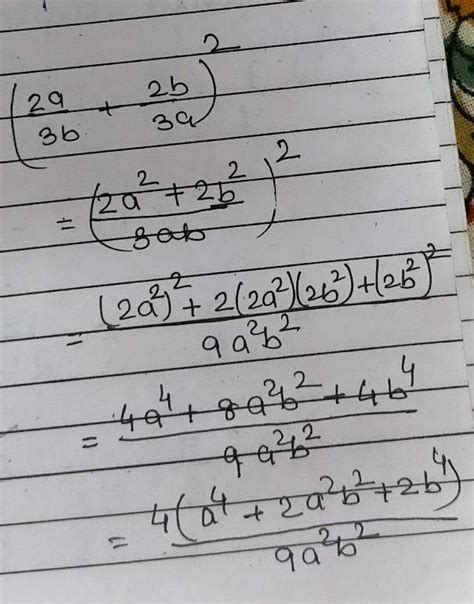 (2a/3b + 2b/3a)²
= ((2a² + 2b²)/3ab)²
= ((2a²)² + 2(2a²)(2b²) + (2b²)²)/9a²b²
= (4a⁴ + 8a²b² + 4b⁴)/9a²b²
= 4(a⁴ + 2a²b² + 2b⁴)/9a²b²